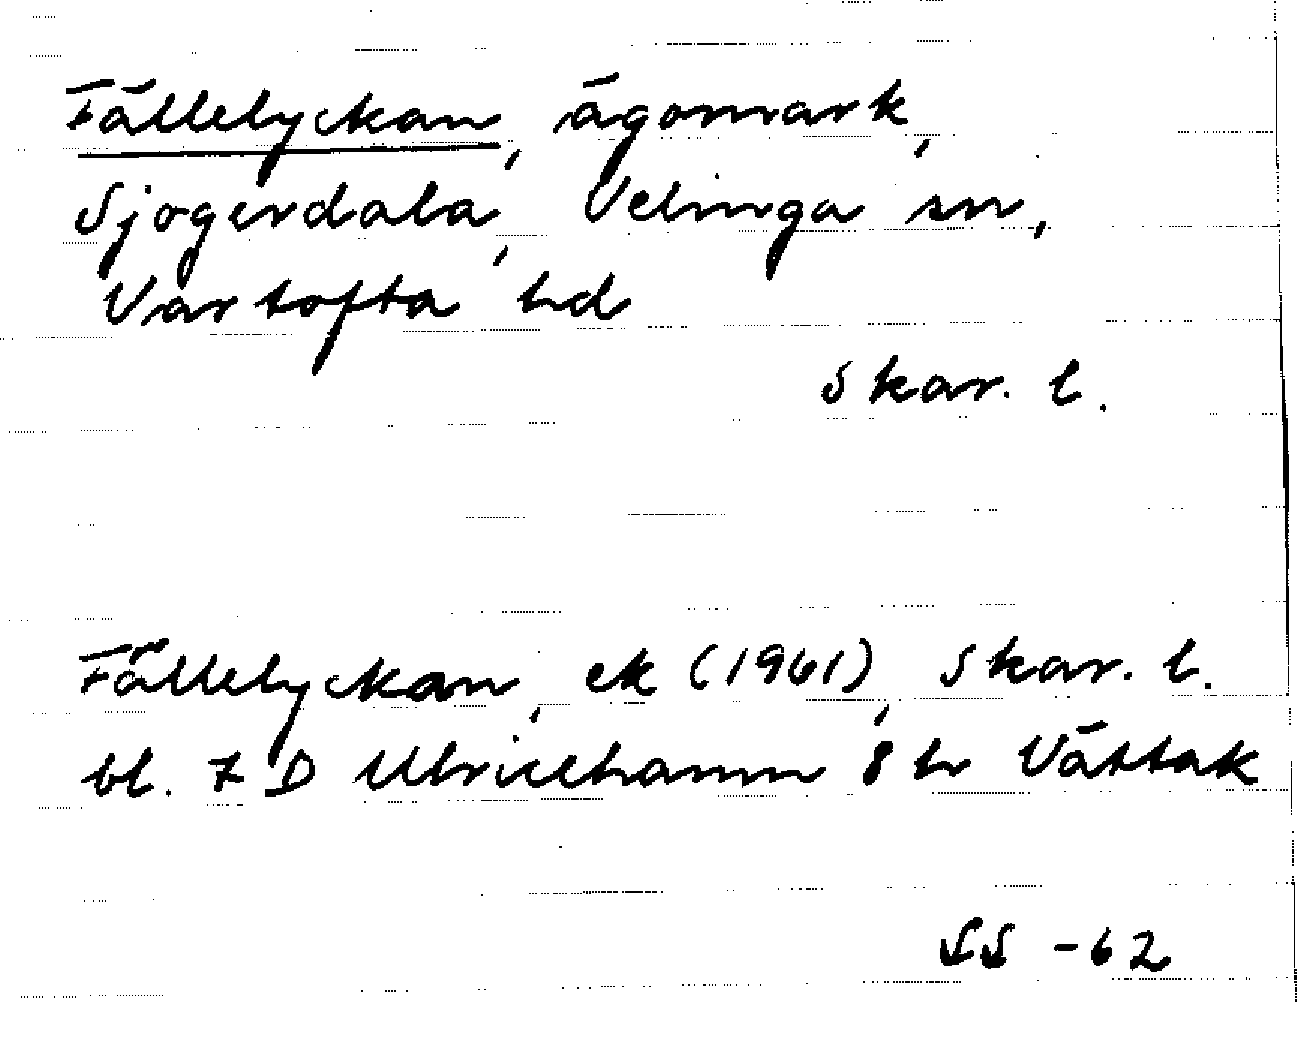 Fällelyckan, ägomark,
Sjogerdala, Velinga sn,
Vartofta hd
Skar. l.
Fällelyckan, ek (1961), Skar. l.
bl. 7 D Ulricehamn 8 h Vättak
SS -62